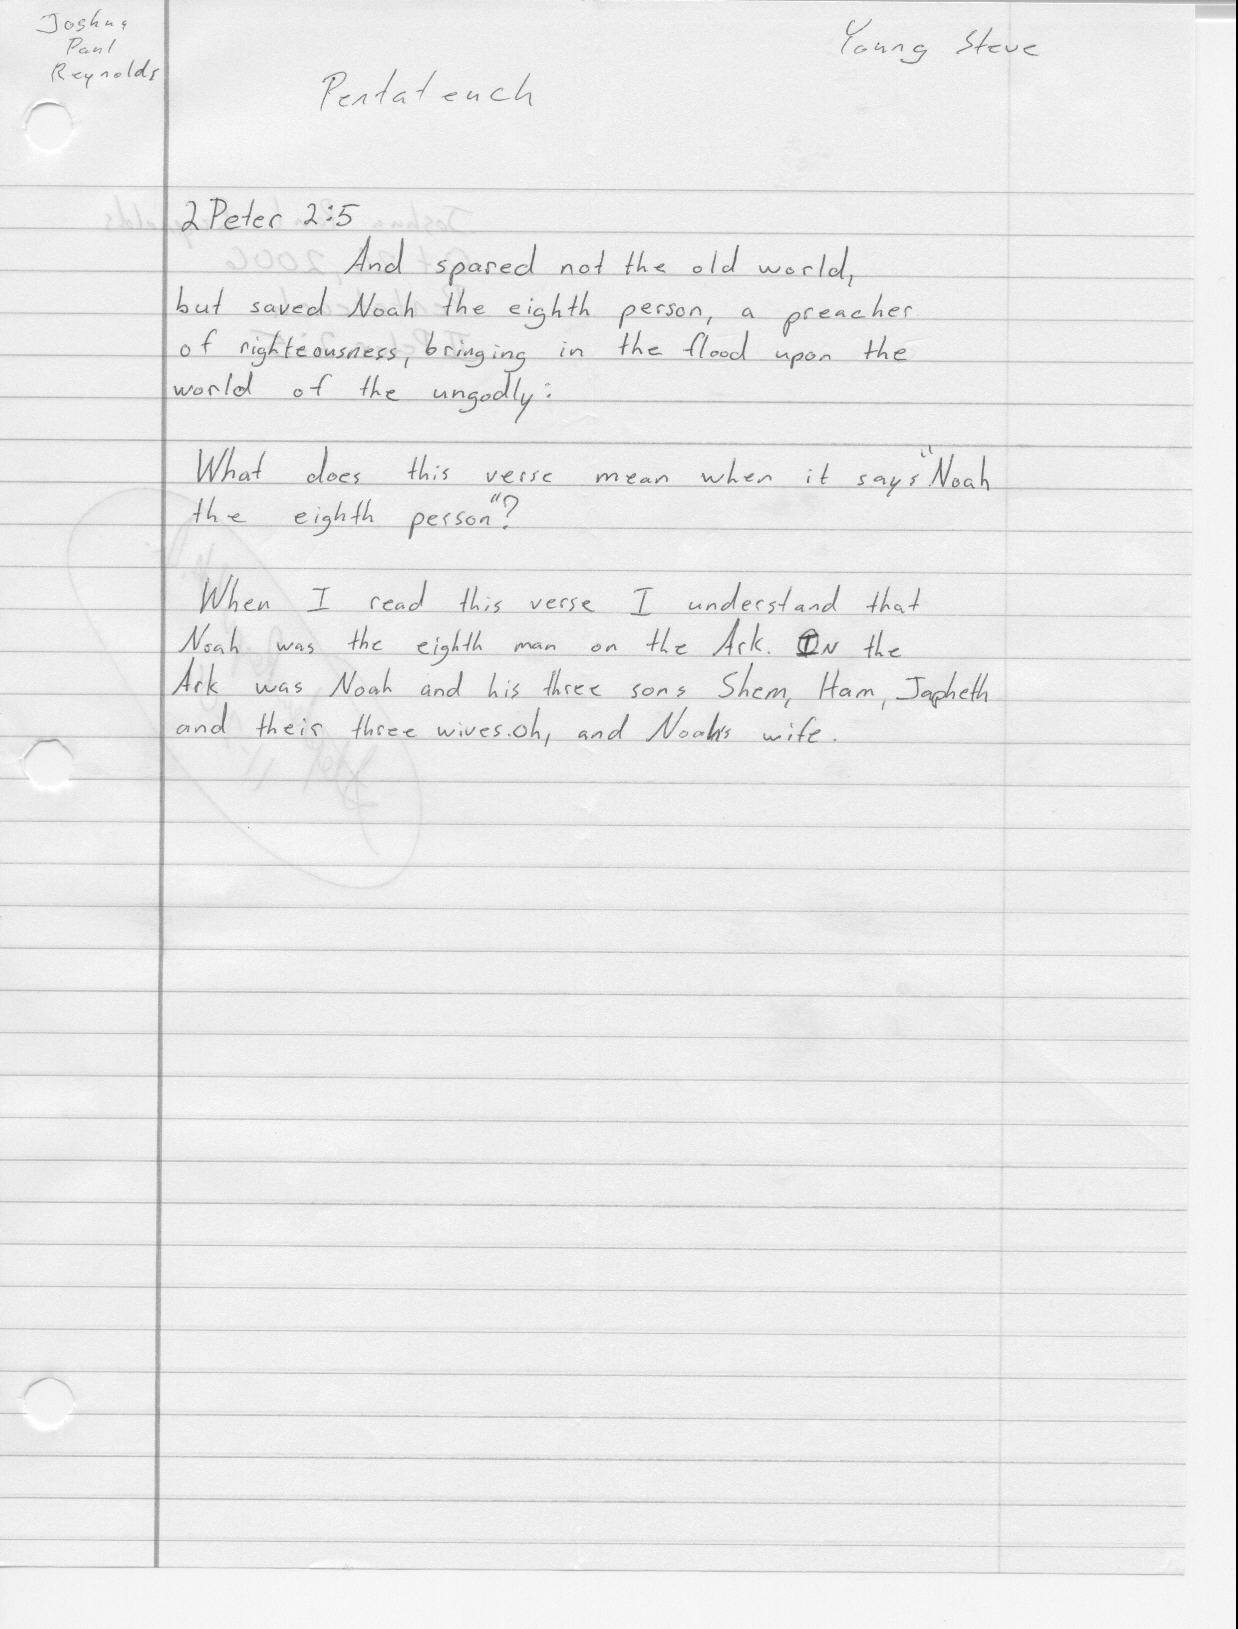 Joshua
Paul
Reynolds
Young Steve
Pentateuch
2 Peter 2:5
And spared not the old world,
but saved Noah the eighth person, a preacher
of righteousness, bringing in the flood upon the
world of the ungodly:
What does this verse mean when it says "Noah
the eighth person"?
When I read this verse I understand that
Noah was the eighth man on the Ark. IN the
Ark was Noah and his three sons Shem, Ham, Japheth
and their three wives. Oh, and Noah's wife.